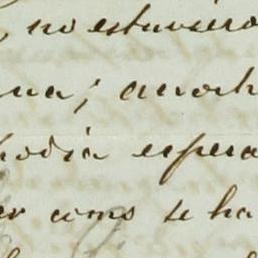 no estuviero
na; anoch
podia espera
er como se ha